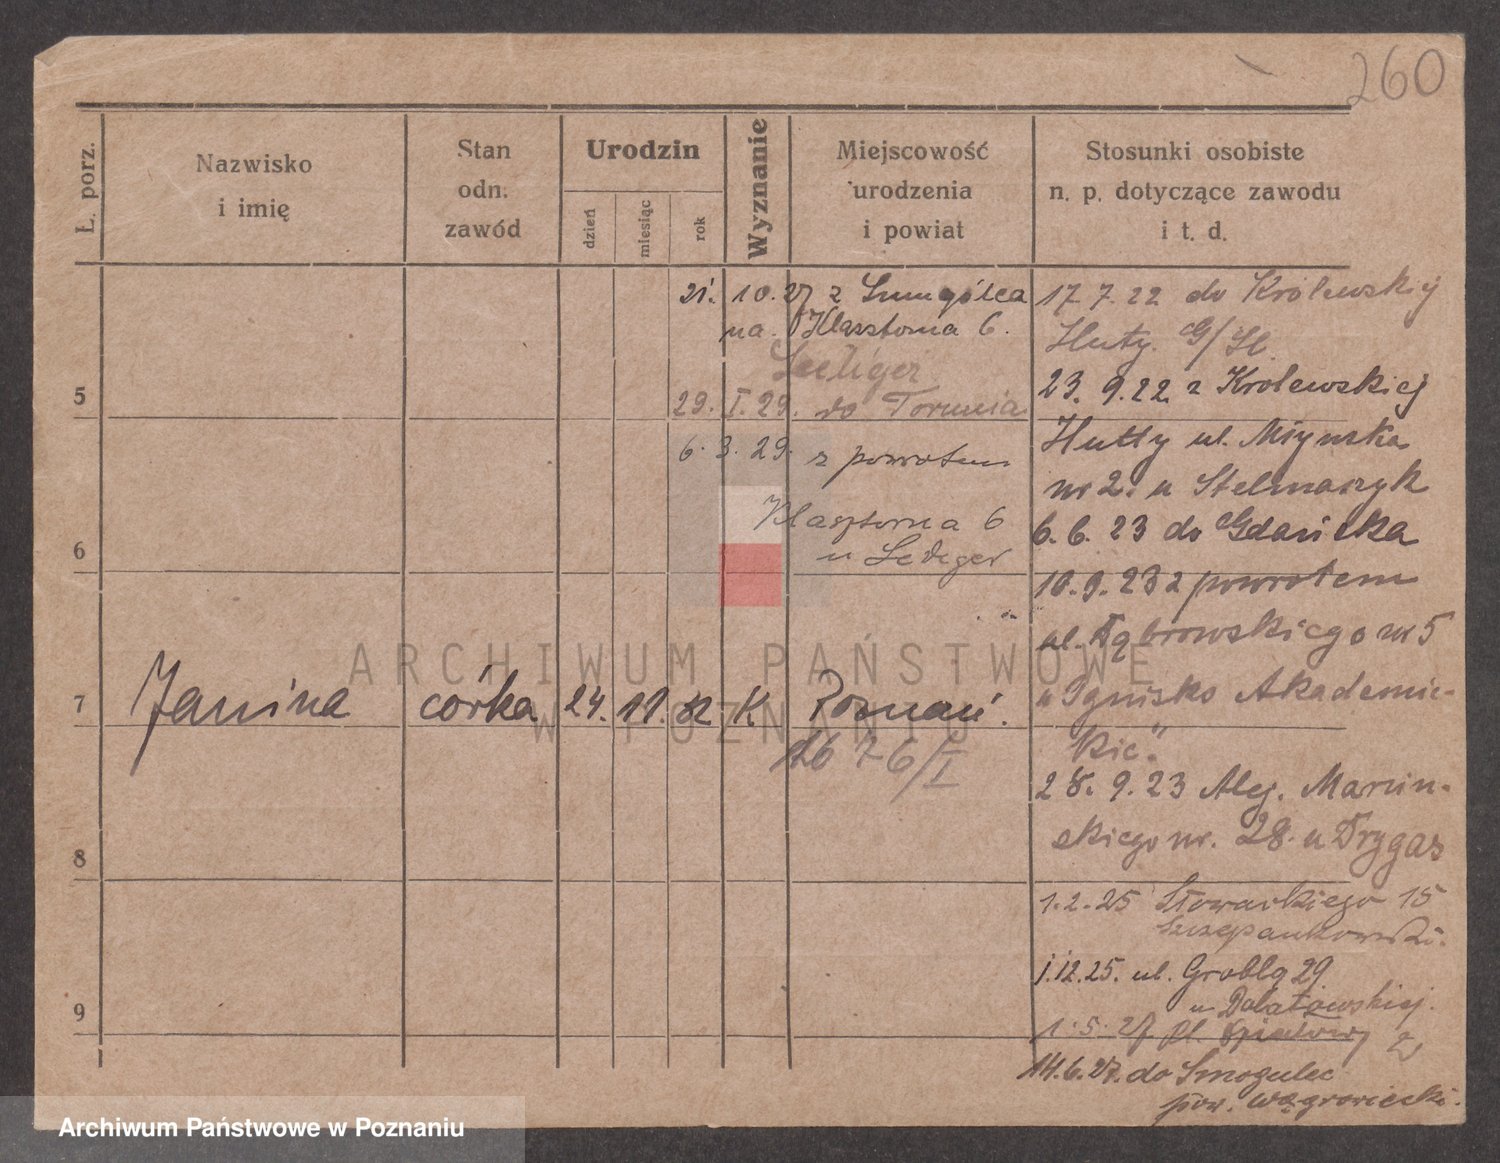 260
Ł. porz.
Nazwisko
i imię
Stan
odn.
zawód
Urodzin
dzień
miesiąc
rok
Wyznanie
Miejscowość
urodzenia
i powiat
Stosunki osobiste
n. p. dotyczące zawodu
i t. d.
21. 10. 27 z
na Klasztorna 6.
29. I. 29. do Torunia
6. 3. 29. z powrotem
Klasztorna 6
u Lediger
5
6
7 Janina córka 24. 11. 32 K Poznań.
8
9
17. 7. 22 do Królewskiej
Huty G/Śl.
23. 9. 22 z Krolewskiej
Hutty ul. Młynska
nr 2. u Stelmaszyk
6. 6. 23 do Gdańska
10. 9. 23 z powrotem
ul. Dąbrowskiego nr 5
"Ognisko Akademic-
kie".
28. 9. 23 Alej. Marcin-
skiego nr. 28. u Frygas
1. 2. 25 Słowackiego 15
Szczepankowski.
1. 12. 25. ul. Grobla 29
u
1. 5. 27 pl.
14. 6. 27. do Smogulec
pow. wągrowiecki.
ARCHIWUM PAŃSTWOWE
W POZNANIU
Archiwum Państwowe w Poznaniu